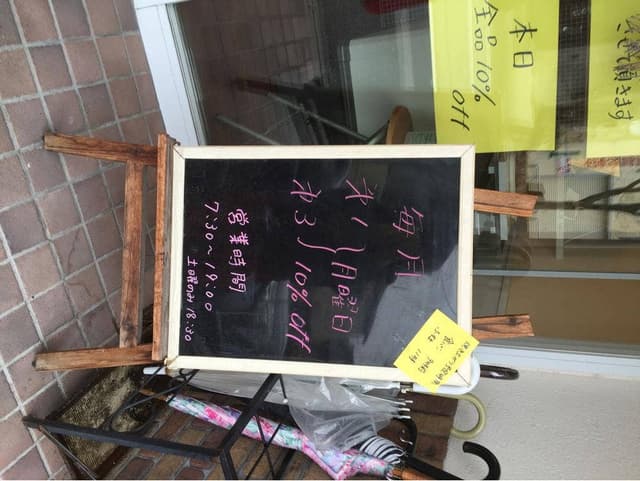 本日
全品10%
off
頂きます
毎月
第1
第3
月曜日
10% off
営業時間
7:30〜19:00
土曜のみ 18:30